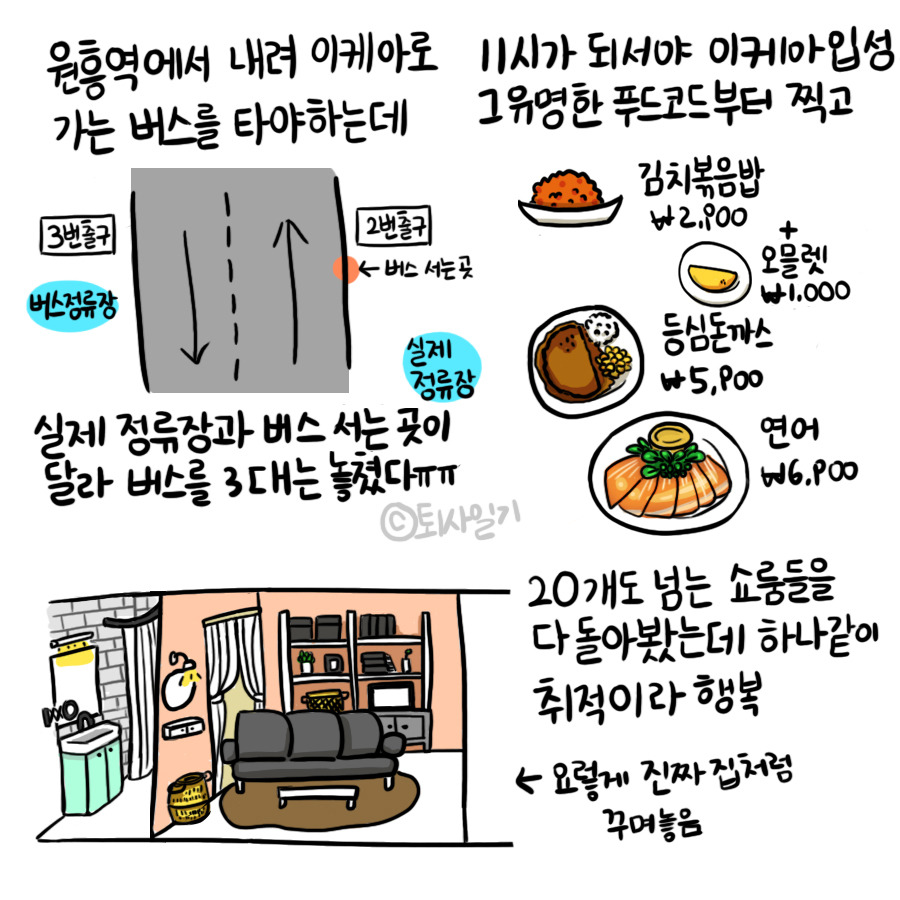 원흥역에서 내려 이케아로
가는 버스를 타야하는데
3번출구
2번출구
← 버스 서는곳
버스정류장
실제
정류장
실제 정류장과 버스 서는 곳이
달라 버스를 3대는 놓쳤다ㅠㅠ
11시가 되서야 이케아입성
그유명한 푸드코드부터 찍고
김치볶음밥
₩2,900
+
오믈렛
₩1.000
등심돈까스
₩5,900
연어
₩6,900
©퇴사일기
20개도 넘는 쇼룸들을
다 돌아봤는데 하나같이
취적이라 행복
← 요렇게 진짜 집처럼
꾸며놓음